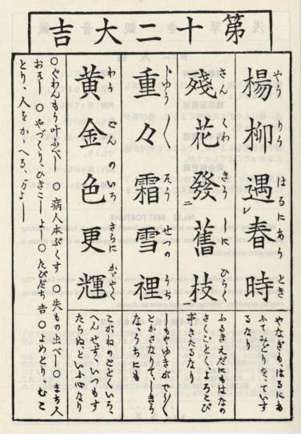 第十二大吉
楊柳遇春時
やなぎもはるにあ
ふてみどりをていす
るなり
殘花發舊枝
ふるきえだにもはなの
さくごとく、よろこび
きたるなり
重々霜雪裡
しもやゆきがだん〱
とかさなりてしろく
なるうちにも
黄金色更輝
こがねのごとくいろ、
へんぜず、いつもす
たらぬといふ心なり
○ぐわんもう叶ふべし ○病人本ぶくす ○失もの出べし ○まち人
おそし ○やづくり、ひつこしよし ○たびだち吉 ○よめとり、むこ
とり、人をかゝへる、万よし